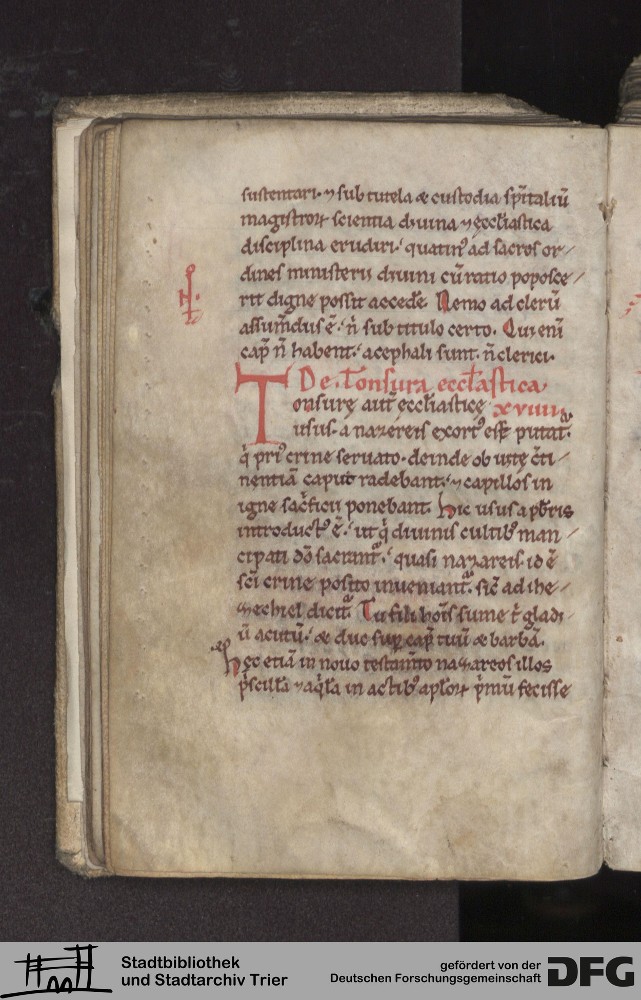 sustentari. ⁊ sub tutela & custodia sp̄italiū
magistroꝝ scientia diuina ⁊ ęccl̄iastica
disciplina erudiri.' quatin᷒ ad sacros or/
dines ministerii diuini cū ratio poposce/
rit digne possit acced̄e. Nemo ad clerū
assum̄dus ē.' n̄ sub titulo certo. Qui eni
cap̄ n̄ habent.' acephali sunt. n̄ clerici.
De Tonsura eccl̄astica
Tonsurę aut̄ ęccl̄iasticę xviiii
usus. a nazereis exort᷒ est putat᷑.
q̇ pri᷒ crine seruato. deinde ob uitę c̄ti/
nentiā caput radebant.' ⁊ capillos in
igne sac̄ficii ponebant. hic usus a pb̄ris
introduct᷒ ē.' ut q̇ diuinis cultib᷒ man/
cipati dō sacrant᷑.' quasi nazareis. id ē
sc̄i crine posito inueniant᷑. sic̄ ad ihe/
zechiel dicit᷑. Tu fili hōis sume t̄ gladi/
ū acutū.' & duc sup̄ cap̄ tuū & barbā.
hęc etiā in nouo testam̄to nazareos illos
p̄scilla ⁊ aq̇la in actib᷒ apl̄oꝝ p̄mū fecisse
Stadtbibliothek
und Stadtarchiv Trier
gefördert von der
Deutschen Forschungsgemeinschaft
DFG